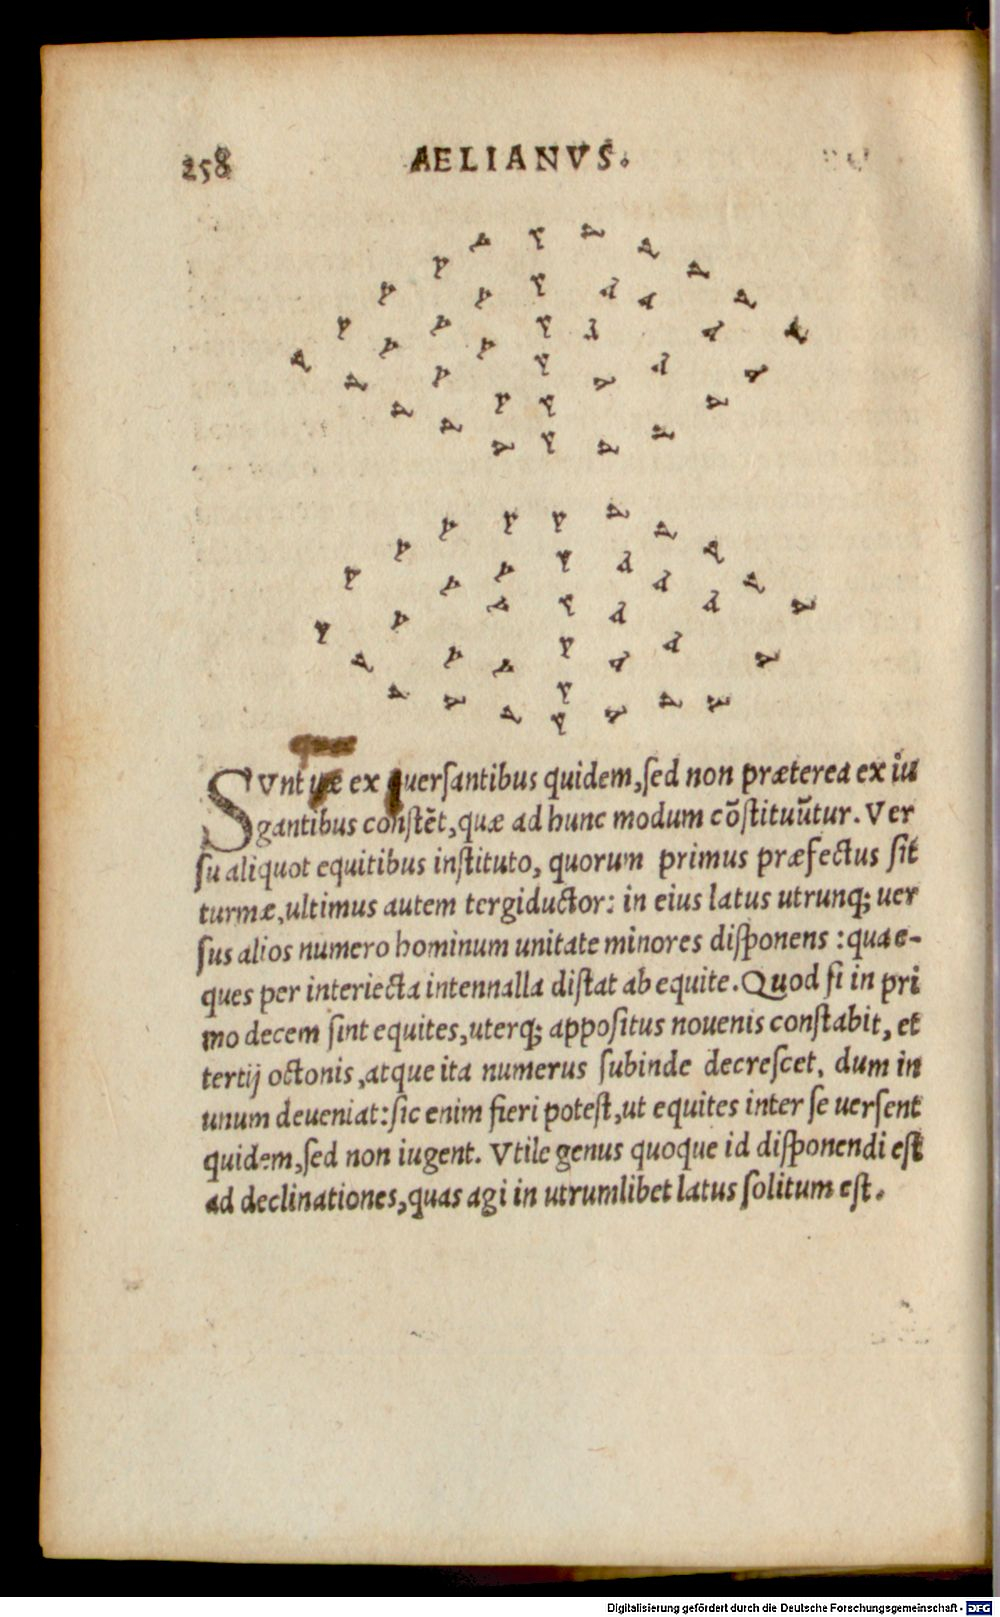 258 AELIANVS.
SVnt quæ ex uersantibus quidem, sed non præterea ex iu
gantibus constẽt, quæ ad hunc modum cõstituũtur. Ver
su aliquot equitibus instituto, quorum primus præfectus sit
turmæ, ultimus autem tergiductor: in eius latus utrunq; uer
sus alios numero hominum unitate minores disponens: qua e-
ques per interiecta intennalla distat ab equite. Quod si in pri
mo decem sint equites, uterq; appositus nouenis constabit, et
tertij octonis, atque ita numerus subinde decrescet, dum in
unum deueniat: sic enim fieri potest, ut equites inter se uersent
quidem, sed non iugent. Vtile genus quoque id disponendi est
ad declinationes, quas agi in utrumlibet latus solitum est.
Digitalisierung gefördert durch die Deutsche Forschungsgemeinschaft - DFG